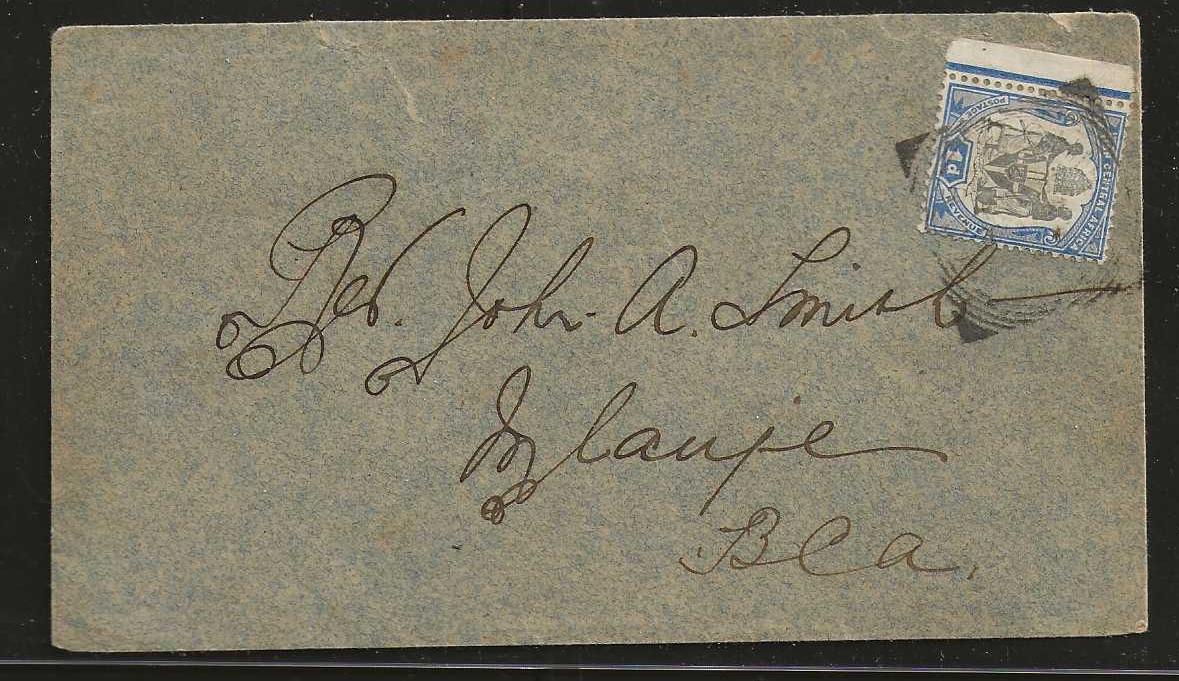 Rev. John A. Smith
Mlanje
BCA.
POSTAGE
1d
REVENUE
CENTRAL AFRICA